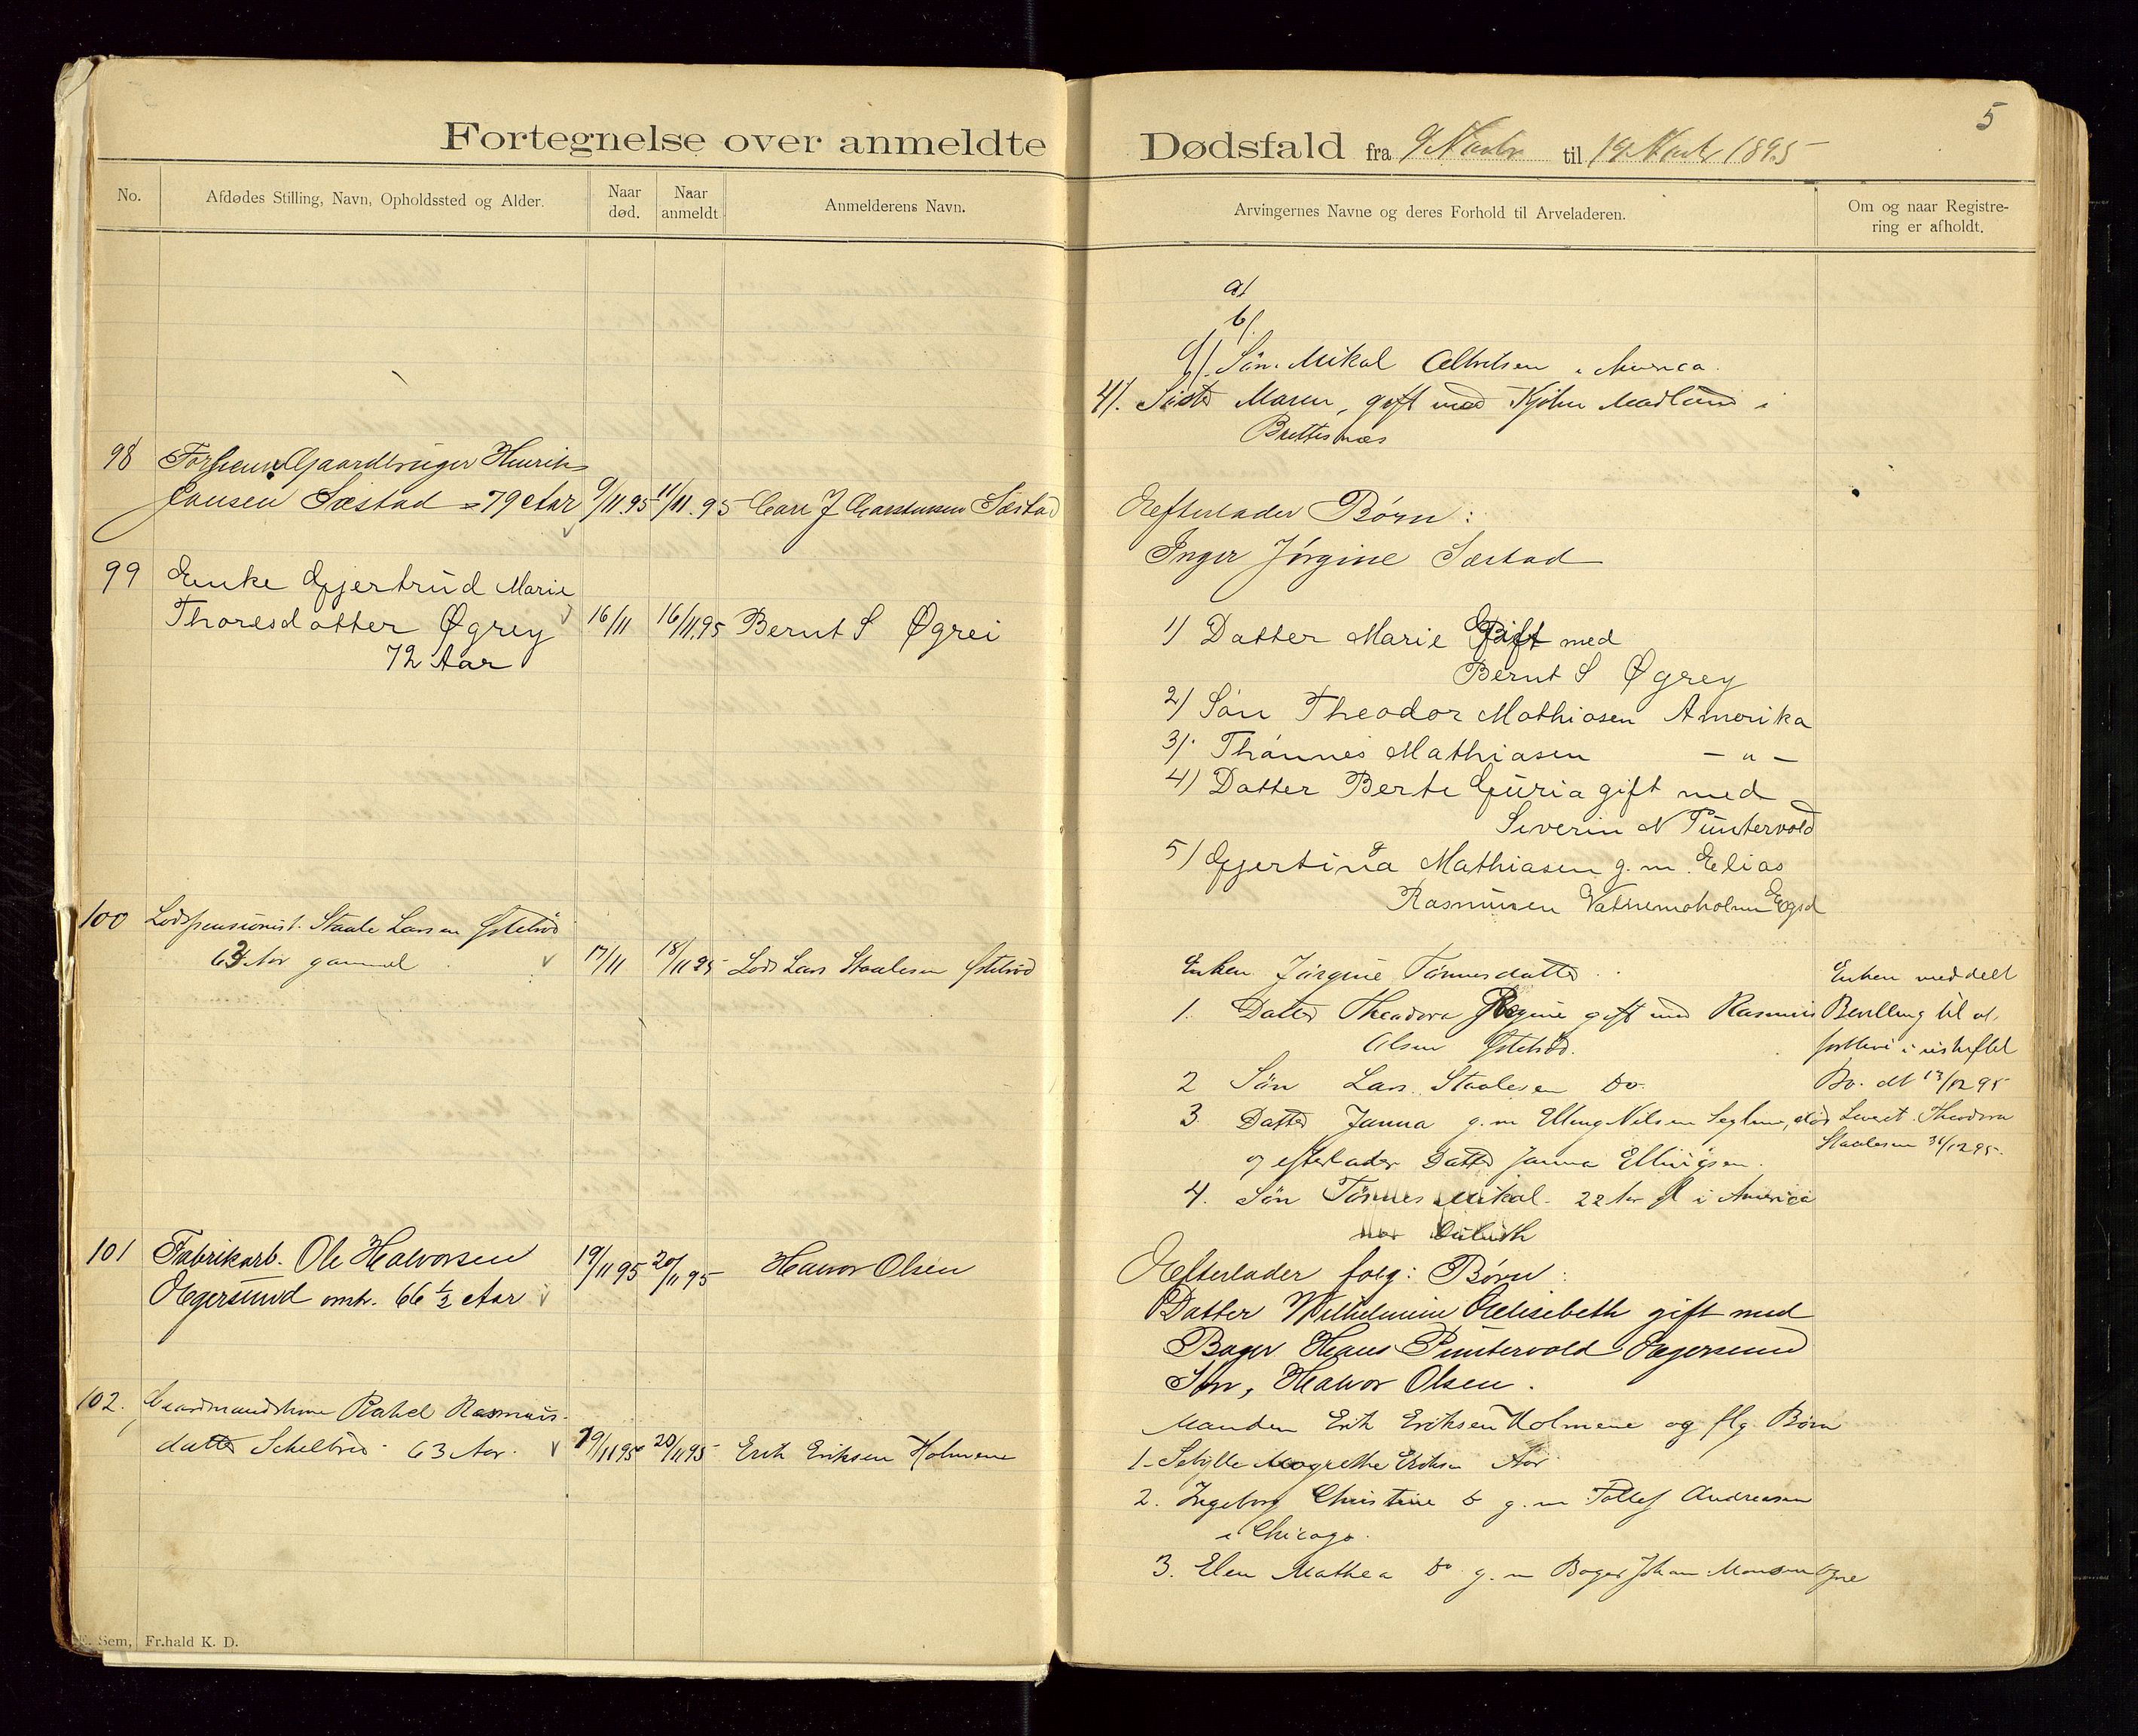 5
Fortegnelse over anmeldte Dødsfald fra 9 Novbr til 19 Novbr 1895
No.
Afdødes Stilling, Navn, Opholdssted og Alder.
Naar død.
Naar anmeldt
Anmelderens Navn.
Arvingernes Navne og deres Forhold til Arveladeren.
Om og naar Registrering er afholdt.
a/
b/
c/. Sön Mikal i America.
4/. Söster Maren, gift med Madland i
98 Gaardbruger Henrik
Jensen Sæstad 79 Aar 9/11.95 11/11.95 Carl J Carstensen Sæstad
Efterlader Børn:
Inger Jørgine Sæstad
99 Enke Gjertrud Marie
Thoresdatter Øgrey 16/11 16/11.95 Bernt S Øgrei
72 Aar
1) Datter Marie Gift med
Bernt S Øgrey
2) Sön Theodor Mathiasen Amerika
3) Thönnes Mathiasen — " —
4) Datter Berte Guria gift med
Severin N Puntervold
5) Gjertina Mathiasen g.m. Elias
Rasmusen Egsd
100 Lodspensionist Staale Larsen
63 Aar gammel 17/11 18/11 95 Lods Lars Staalesen
Enken Jörgine Tönnesdatter
1. Datter Theodora Regine gift med Rasmus
Olsen
2 Sön Lars Staalesen do.
3. Datter Janna g.m Elling Nilsen, död
og efterlader Datter Janna Ellingsen.
4. Sön Tönnes Mikal 22 Aar gl i America
Duluth
Enken meddelt
Bevilling til at
forblive i uskiftet
Bo. dt 13/12 95
Leveret Theodora
Staalesen 31/12 95.
101 Fabrikarb. Ole Halvorsen 19/11 95 20/11 95 Halvor Olsen
Egersund omtr. 66 1/2 Aar
Efterlader følg: Børn:
Datter Wilhelmine Elisebeth gift med
Bager Hans Puntervold Egersund
Søn, Halvor Olsen.
102. Gaardmandskone Rakel Rasmus-
datter 63 Aar. 19/11 95 20/11 95 Erik Eriksen Holmene
Manden Erik Eriksen Holmene og flg. Børn
1. Margrethe Eriksen
2. Ingeborg Christine do g.m Tollef Andreasen
i Chicago.
3. Elen Mathea do g.m Bager Johan Monsen
Sem, Fr.hald K. D.